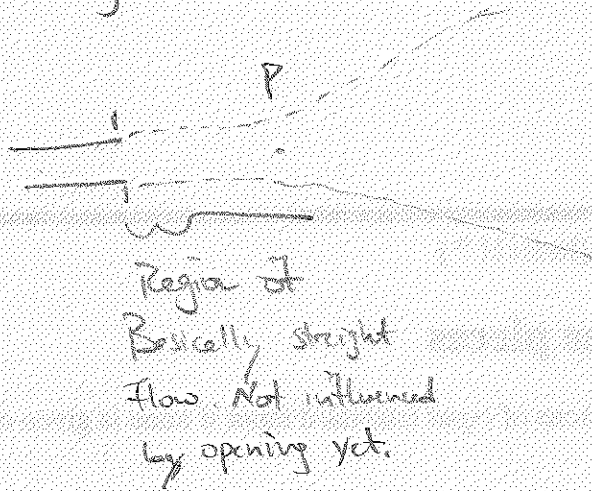 P
Region of
Basically straight
Flow. Not influenced
by opening yet.